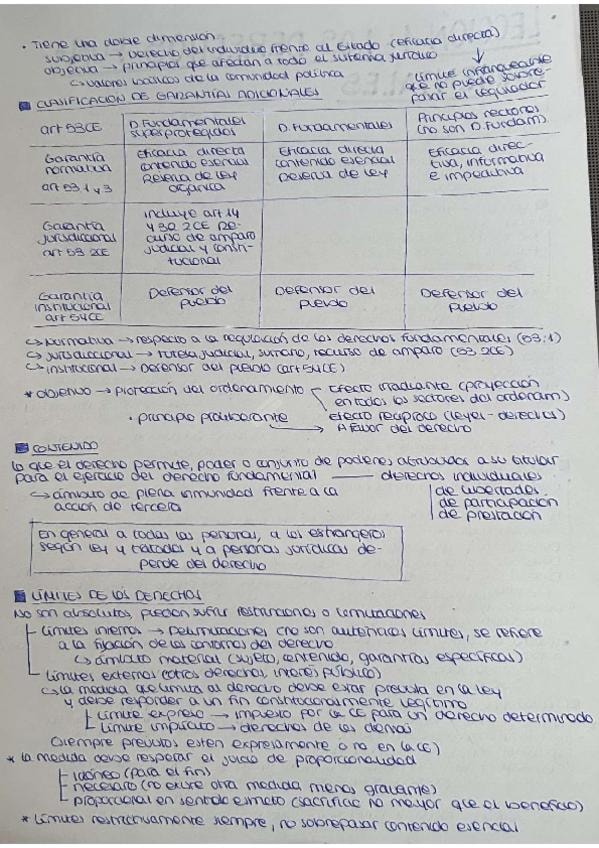 • Tiene una doble dimensión
subjetiva → Derecho del individuo frente al Estado (eficacia directa)
objetiva → principios que afectan a todo el sistema jurídico
↳ valores básicos de la comunidad política
Límite infranqueable que no puede sobrepasar el legislador
CLASIFICACIÓN DE GARANTÍAS ADICIONALES
art 53 CE | D. Fundamentales superprotegidos | D. Fundamentales | Principios rectores (no son D. Fundam.)
Garantía normativa art 53 1 y 3 | Eficacia directa contenido esencial Reserva de ley orgánica | Eficacia directa contenido esencial Reserva de ley | Eficacia directiva, informativa e impeditiva
Garantía jurisdiccional art 53 2CE | Incluye art 14 y 30 2CE Recurso de amparo judicial y constitucional
Garantía institucional art 54CE | Defensor del pueblo | Defensor del pueblo | Defensor del pueblo
↳ Normativa → respecto a la regulación de los derechos fundamentales (53.1)
↳ Jurisdiccional → tutela judicial, sumario, recurso de amparo (53 2CE)
↳ institucional → Defensor del pueblo (art 54CE)
* objetivo → protección del ordenamiento
Efecto irradiante (proyección en todos los sectores del ordenam)
efecto recíproco (leyes - derechos)
• principio → A favor del derecho
CONTENIDO
lo que el derecho permite, poder o conjunto de poderes atribuidos a su titular
para el ejercicio del derecho fundamental — derechos individuales
de libertades
de participación
de prestación
↳ ámbito de plena inmunidad frente a la
acción de terceros
En general a todas las personas, a los extranjeros
según ley y tratados y a personas jurídicas de-
pende del derecho
LÍMITES DE LOS DERECHOS
No son absolutos, pueden sufrir restricciones o limitaciones
Límites internos → Delimitaciones (no son auténticos límites, se refiere
a la fijación de los contornos del derecho
↳ ámbito material (sujeto, contenido, garantías específicas)
Límites externos (otros derechos, interés público)
↳ la medida que limita al derecho debe estar prevista en la ley
y debe responder a un fin constitucionalmente legítimo
Límite expreso → impuesto por la CE para un derecho determinado
Límite implícito → derechos de los demás
(siempre previstos estén expresamente o no en la CE)
* la medida debe respetar el juicio de proporcionalidad
idóneo (para el fin)
necesario (no existe otra medida menos gravante)
proporcional en sentido estricto (sacrificio no mayor que el beneficio)
* Límites restrictivamente siempre, no sobrepasar contenido esencial